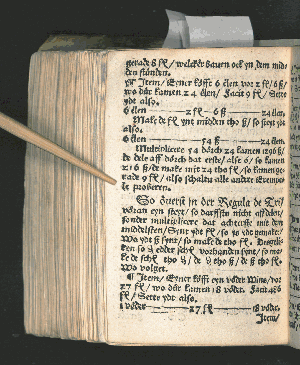 gerade 8 fl/ welcke bauen ock yn dem mid-
den stünden.
Item/ Eyner köfft 6 elen vor 2 fl/ 6 ß/
wo dür kamen 24 elen/ Facit 9 fl/ Sette
ydt also.
6 elen 2 fl 6 ß 24 elen.
Make de fl ynt midden tho ß/ so steyt ydt
also.
6 elen 54 ß 24 elen.
Multiplicere 54 dörch 24 kamen 1296 ß/
de dele aff dörch dat erste/ alse 6/ so kamen
216 ß/ de make mit 24 tho fl/ so kumen ge-
rade 9 fl/ also schaltu alle ander Exempel
proberen.
So överst in der Regula de Tri/
vöran eyn steyt/ so darffstu nicht affdelen/
sonder multiplicere dat achterste mit dem
middelsten/ Synt ydt fl/ so ys ydt gemaket/
Wo ydt ß synt/ so make de tho fl.
vorhanden synt/ so ma-
ke de tho de tho ß/ de ß tho fl.
Wo volget.
¶ Item/ Eyner köfft eyn vöder Wins/ vor
27 fl/ wo dür kamen 18 vöder. Facit 486
fl/ Sette ydt also.
1 vöder 27 fl 18 vöder.
Item/